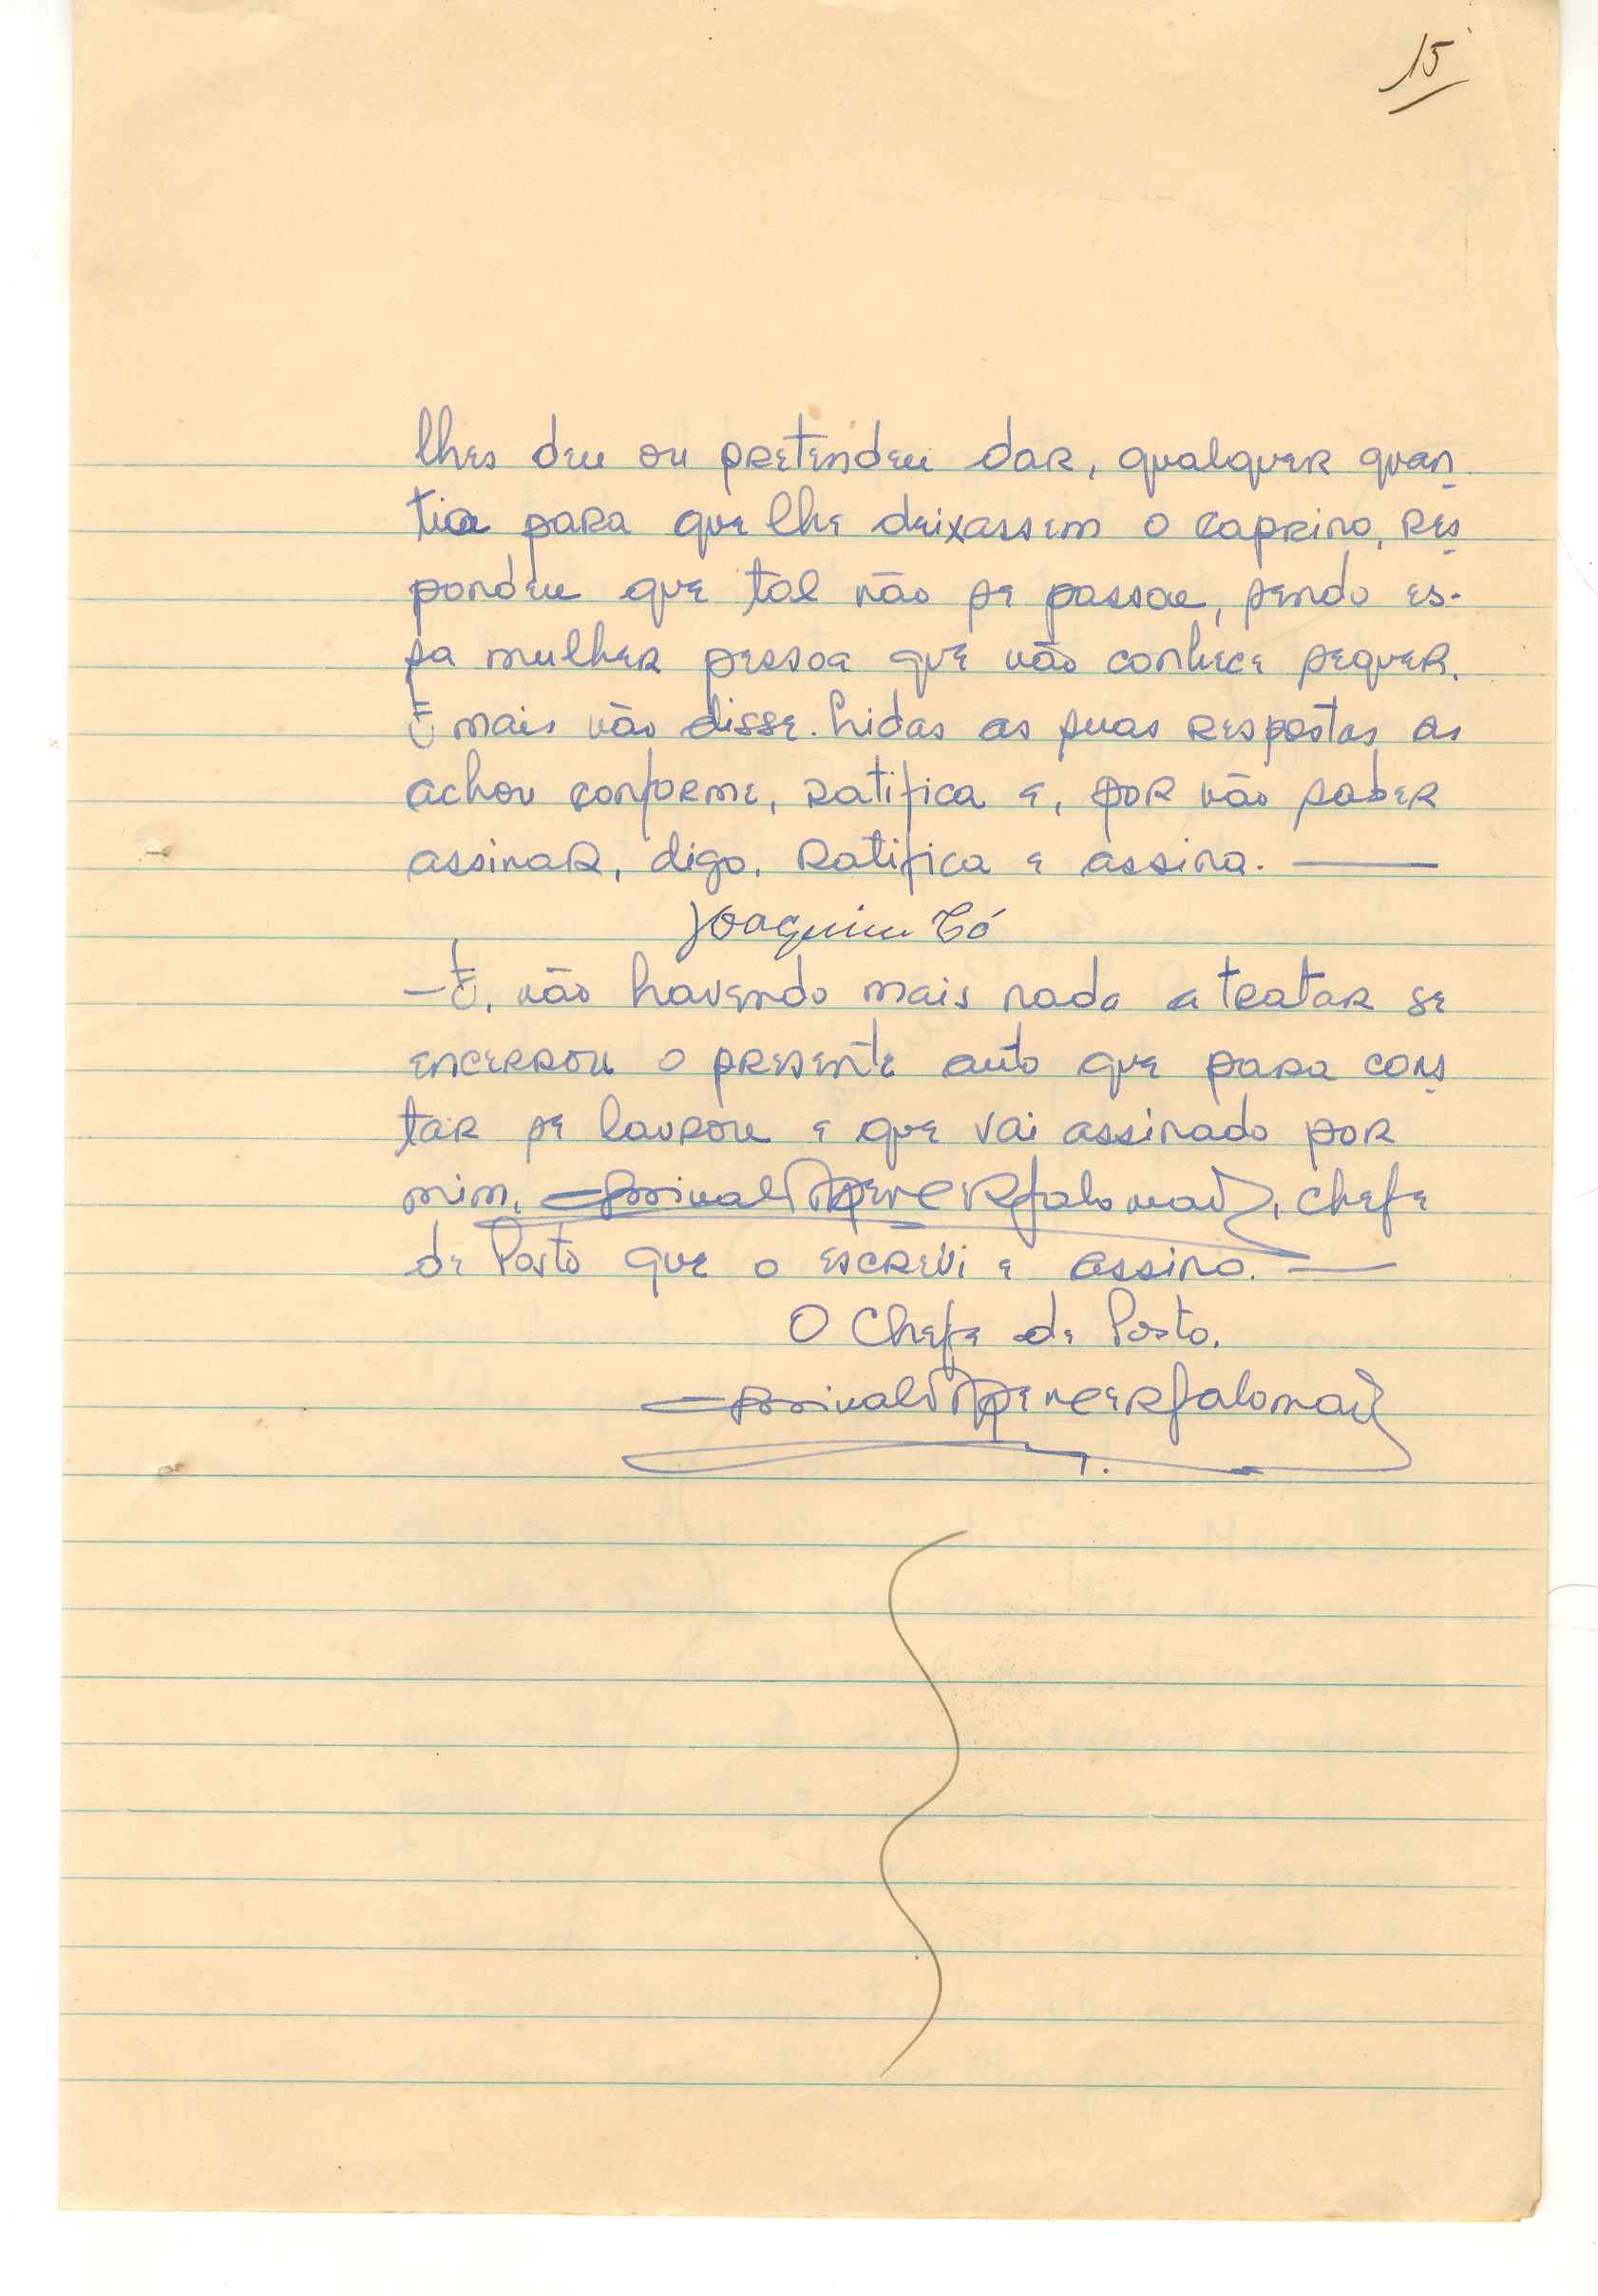 15
lhes deu ou pretendeu dar, qualquer quan
tia para que lhe deixassem o caprino, res
pondeu que tal não se passou, sendo es-
sa mulher pessoa que não conhece sequer.
E mais não disse. Lidas as suas respostas as
achou conforme, ratifica e, por não saber
assinar, digo, ratifica e assina. ———
Joaquim Có
— E, não havendo mais nada a tratar se
encerrou o presente auto que para cons
tar se lavrou e que vai assinado por
mim, , chefe
de Posto que o escrevi e assino. ——
O Chefe de Posto,